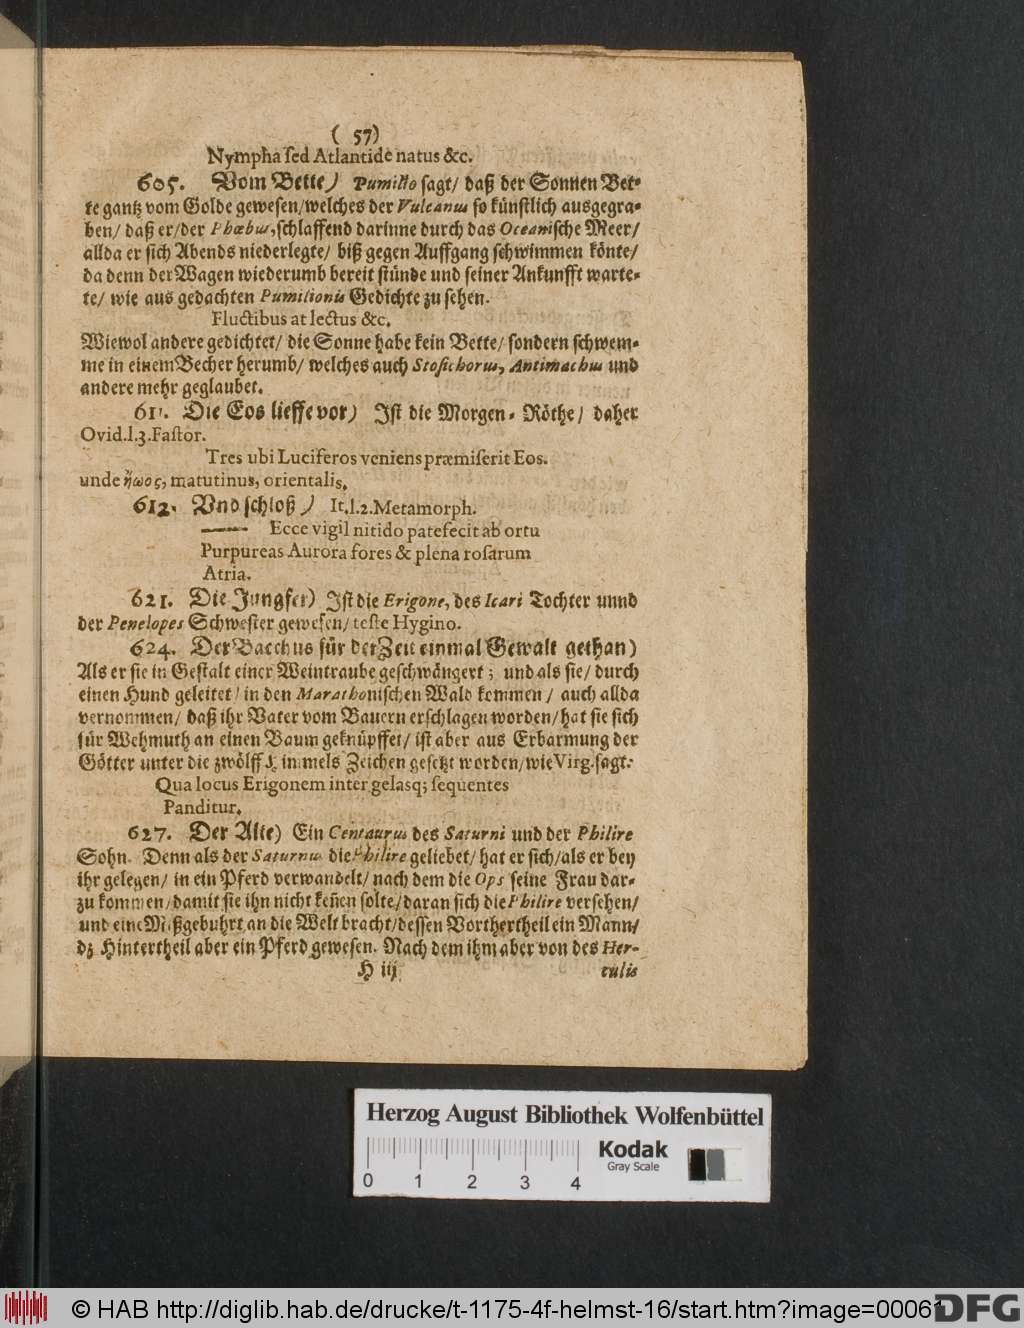 ( 57)
Nympha sed Atlantide natus &c.
605. Vom Bette) Pumilio sagt/ daß der Sonnen Bet-
te gantz vom Golde gewesen/welches der Vulcanus so künstlich ausgegra-
ben/ daß er/der Phœbus,schlaffend darinne durch das Oceanische Meer/
allda er sich Abends niederlegte/ biß gegen Auffgang schwimmen könte/
da denn der Wagen wiederumb bereit stünde und seiner Ankunfft warte-
te/ wie aus gedachten Pumilionis Gedichte zu sehen.
Fluctibus at lectus &c.
Wiewol andere gedichtet/ die Sonne habe kein Bette/ sondern schwem-
me in einem Becher herumb/ welches auch Stosichorus, Antimachus und
andere mehr geglaubet.
611. Die Eos lieffe vor) Ist die Morgen-Röthe/ daher
Ovid.l.3.Fastor.
Tres ubi Luciferos veniens præmiserit Eos.
unde ἠῶος, matutinus, orientalis.
612. Und schloß) It.l.2.Metamorph.
—— Ecce vigil nitido patefecit ab ortu
Purpureas Aurora fores & plena rosarum
Atria.
621. Die Jungfer) Ist die Erigone, des Icari Tochter unnd
der Penelopes Schwester gewesen/ teste Hygino.
624. Der Bacchus für der Zeit einmal Gewalt gethan)
Als er sie in Gestalt einer Weintraube geschwängert; und als sie/ durch
einen Hund geleitet/ in den Marathonischen Wald kommen / auch allda
vernommen/ daß ihr Vater vom Bauern erschlagen worden/hat sie sich
für Wehmuth an einen Baum geknüpffet/ ist aber aus Erbarmung der
Götter unter die zwölff Himmels Zeichen gesetzt worden/wie Virg.sagt:
Qua locus Erigonem inter gelasq; sequentes
Panditur.
627. Der Alte) Ein Centaurus des Saturni und der Philire
Sohn. Denn als der Saturnus die Philire geliebet/ hat er sich/als er bey
ihr gelegen/ in ein Pferd verwandelt/ nach dem die Ops seine Frau dar-
zu kommen/damit sie ihn nicht keñen solte/daran sich die Philire versehen/
und eine Mißgebuhrt an die Welt bracht/dessen Vorthertheil ein Mann/
dz Hintertheil aber ein Pferd gewesen. Nach dem ihm aber von des Her-
H iij culis
Herzog August Bibliothek Wolfenbüttel
Kodak
Gray Scale
0 1 2 3 4
© HAB http://diglib.hab.de/drucke/t-1175-4f-helmst-16/start.htm?image=00061
DFG